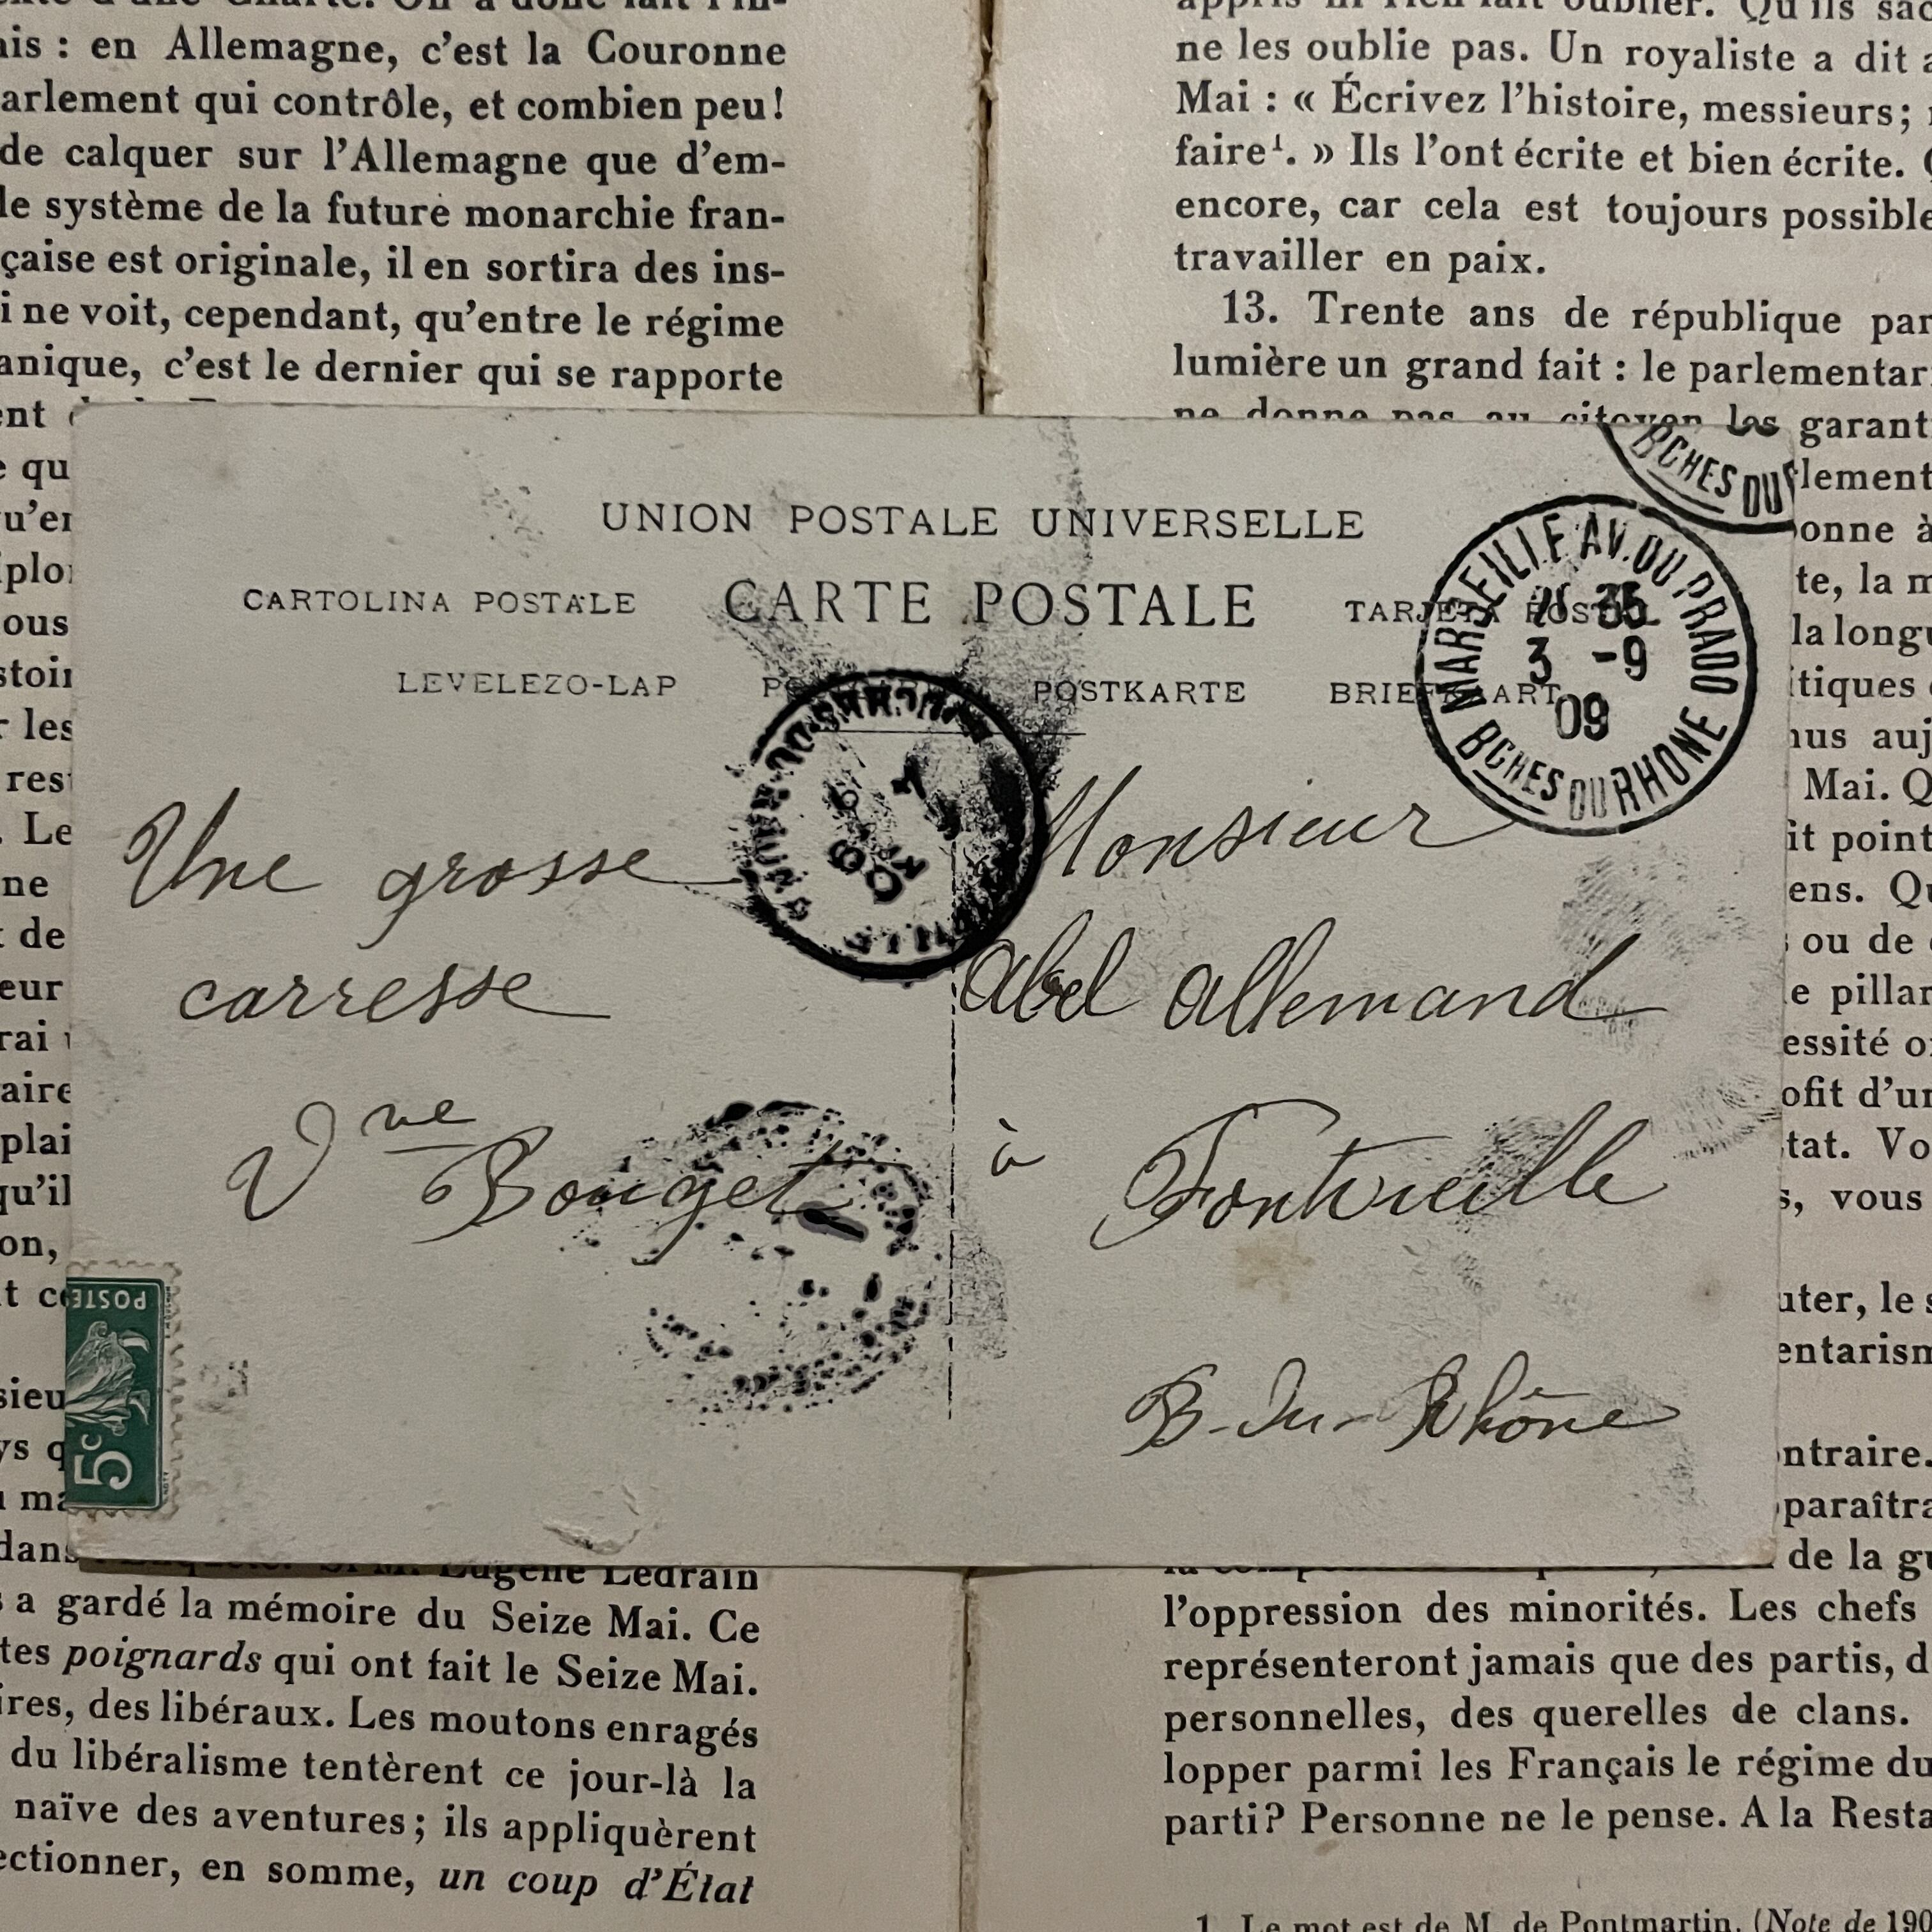 ais : en Allemagne, c'est la Couronne
arlement qui contrôle, et combien peu!
de calquer sur l'Allemagne que d'em-
le système de la future monarchie fran-
çaise est originale, il en sortira des ins-
i ne voit, cependant, qu'entre le régime
anique, c'est le dernier qui se rapporte
ne les oublie pas. Un royaliste a dit a
Mai : « Écrivez l'histoire, messieurs;
faire¹. » Ils l'ont écrite et bien écrite.
encore, car cela est toujours possible
travailler en paix.
13. Trente ans de république par
lumière un grand fait : le parlementar
ne donne pas au citoyen les garant
UNION POSTALE UNIVERSELLE
CARTOLINA POSTALE CARTE POSTALE TARJETA POSTAL
LEVELEZO-LAP POSTKARTE BRIEFKAART
BCHES DU
MARSEILLE AV. DU PRADO
3 -9
09
BCHES DU RHONE
Une grosse
carresse
Vve Bouget
Monsieur
Abel Allemand
à Fontvieille
B-du-Rhône
POSTE
5c
lement
onne à
te, la m
la longu
itiques
nus auj
Mai. Q
it point
ens. Qu
ou de
e pillar
essité o
ofit d'un
tat. Vo
s, vous
uter, le s
entarism
ontraire.
paraîtra
de la gu
Eugène Ledrain
a gardé la mémoire du Seize Mai. Ce
tes poignards qui ont fait le Seize Mai.
ires, des libéraux. Les moutons enragés
du libéralisme tentèrent ce jour-là la
naïve des aventures; ils appliquèrent
ectionner, en somme, un coup d'État
l'oppression des minorités. Les chefs
représenteront jamais que des partis, d
personnelles, des querelles de clans.
lopper parmi les Français le régime du
parti? Personne ne le pense. A la Resta
1. Le mot est de M. de Pontmartin. (Note de 190